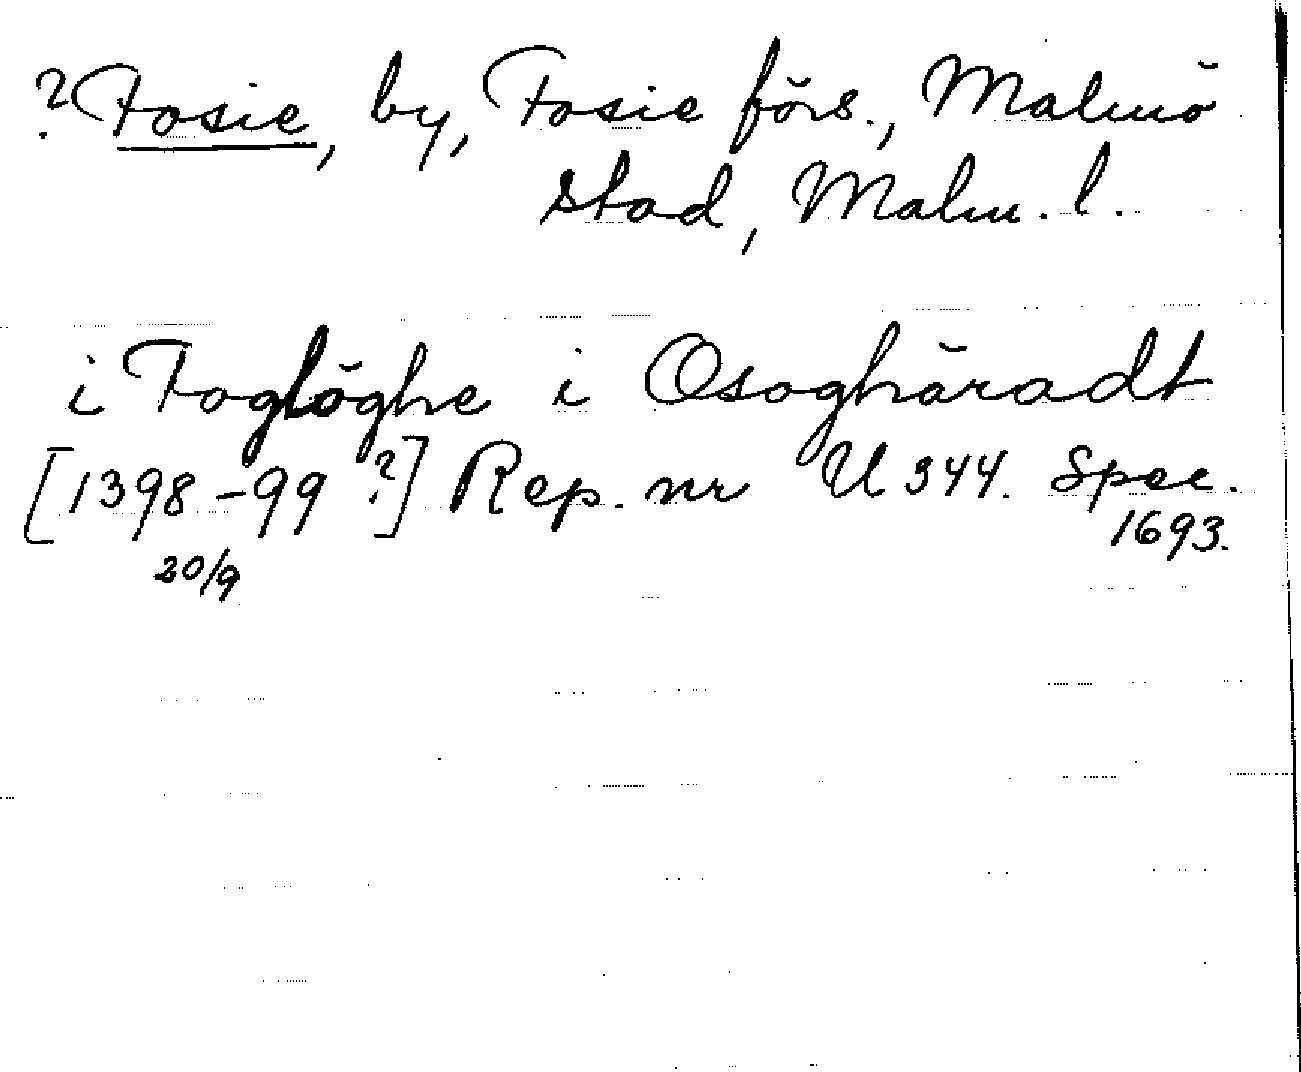 ? Fosie, by, Fosie förs., Malmö
stad, Malm. l.
i Foglöghe i Osoghäradt
[1398-99 ?] Rep. nr U 344. Spec.
1693.
20/9